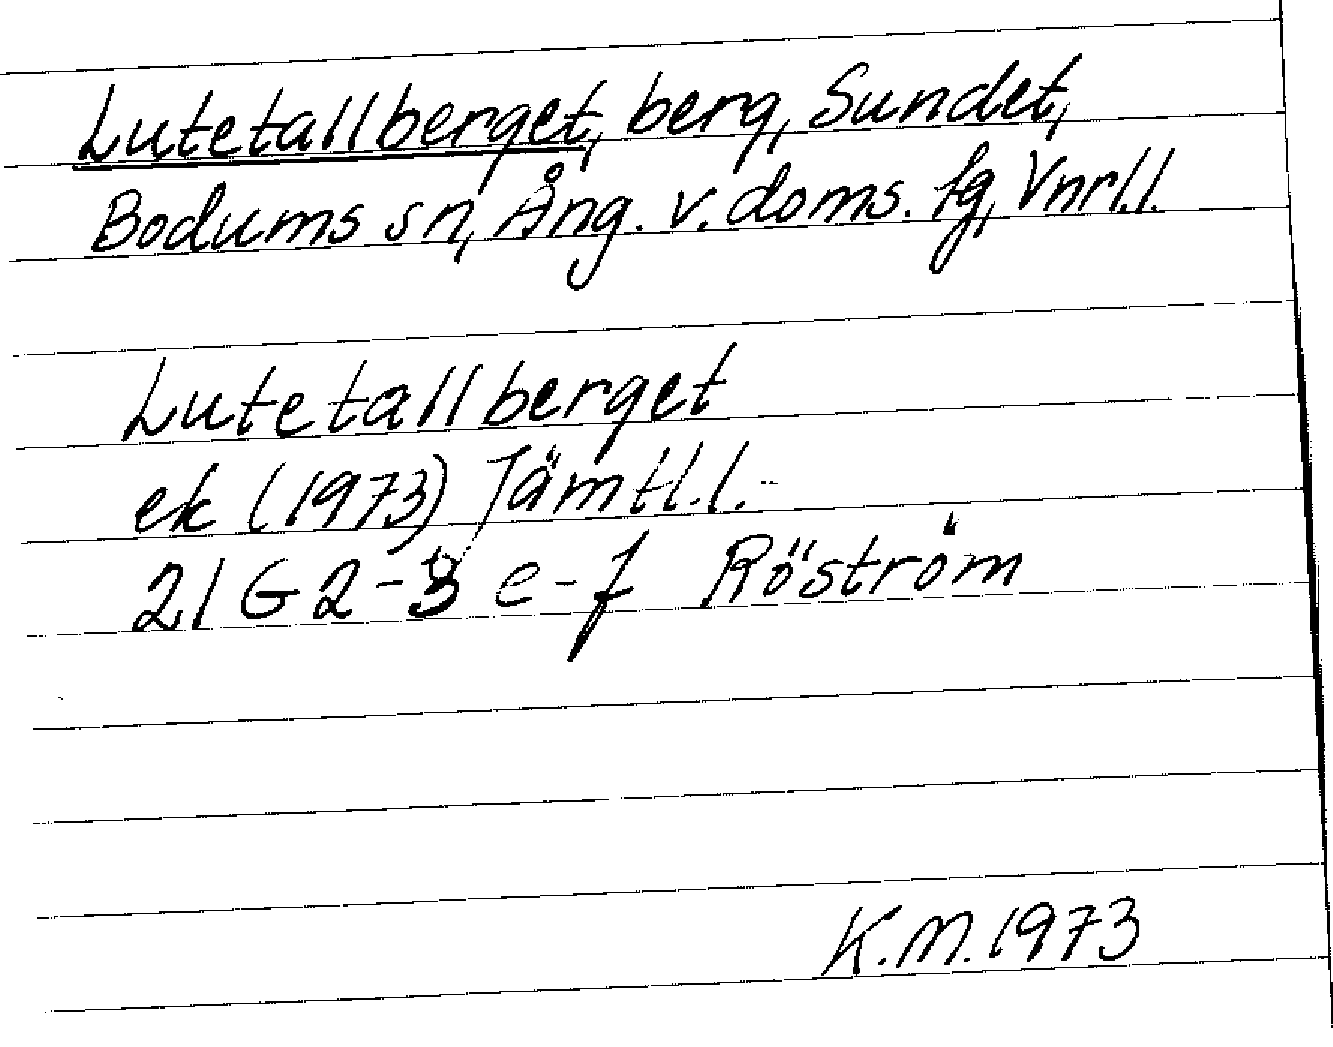 Lutetallberget, berg, Sundet,
Bodums sn, Ång. v. doms. fg, Vnrl.l.
Lutetallberget
ek (1973) Jämtl.l.
21 G 2-3 e-f Röström
K.M. 1973